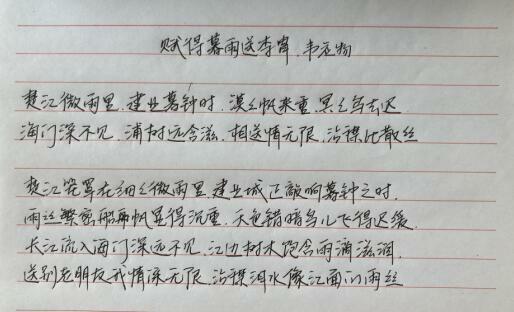 赋得暮雨送李胄 韦应物
楚江微雨里,建业暮钟时,漠々帆来重,冥々鸟去迟
海门深不见,浦树远含滋,相送情无限,沾襟比散丝
楚江笼罩在细々微雨里,建业城正敲响暮钟之时,
雨丝繁密船帆显得沉重,天色错暗鸟儿飞得迟缓,
长江流入海门深远不见,江边树木饱含雨滴滋润,
送别老朋友我情深无限,沾襟泪水像江面的雨丝